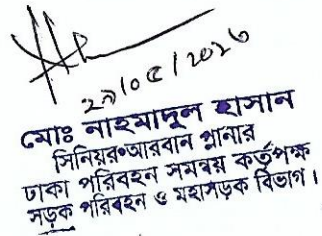 মোঃ নাহমাদুল হাসান
সিনিয়র আরবান প্লানার
ঢাকা পরিবহন সমন্বয় কর্তৃপক্ষ
সড়ক পরিবহন ও মহাসড়ক বিভাগ।